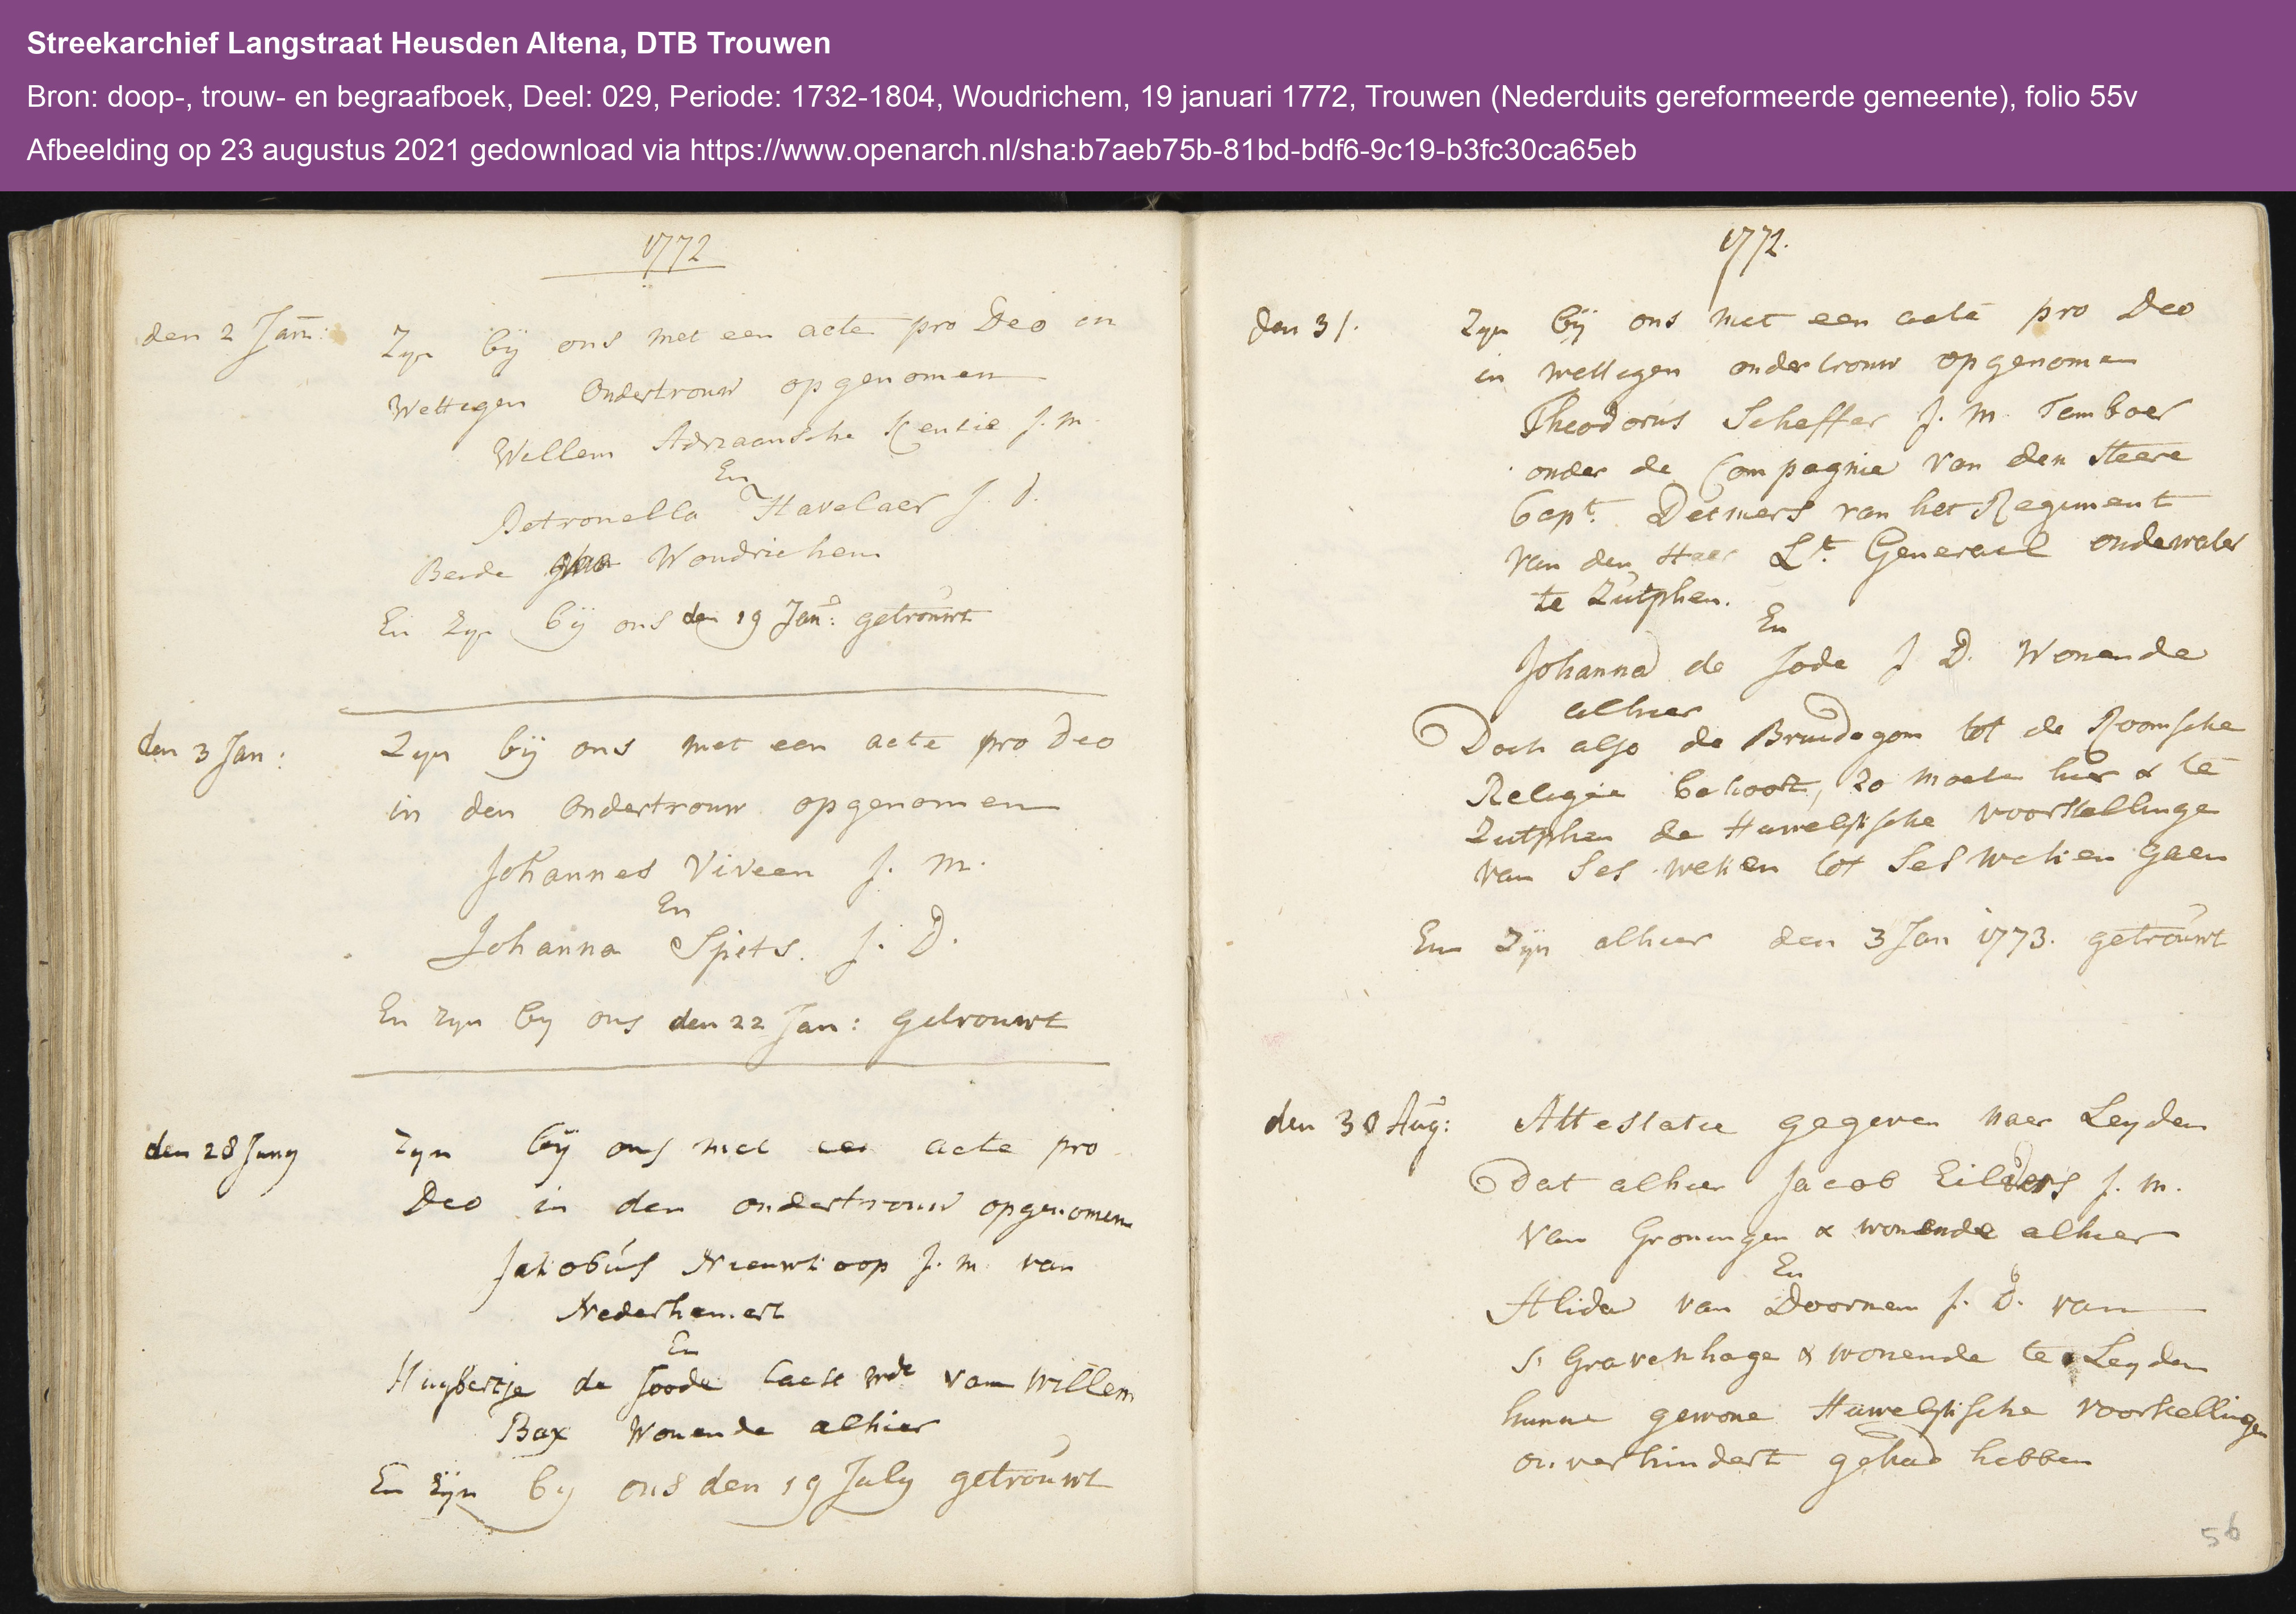 Streekarchief Langstraat Heusden Altena, DTB Trouwen
Bron: doop-, trouw- en begraafboek, Deel: 029, Periode: 1732-1804, Woudrichem, 19 januari 1772, Trouwen (Nederduits gereformeerde gemeente), folio 55v
Afbeelding op 23 augustus 2021 gedownload via https://www.openarch.nl/sha:b7aeb75b-81bd-bdf6-9c19-b3fc30ca65eb
1772
den 2 Jan: Zyn bij ons met een acte pro Deo in
Wettigen Ondertrouw opgenomen
Willem Adriaansche Kentie j. m.
En
Petronella Havelaer j. d.
Beide Woudrichem
En Zyn bij ons den 19 Jan: getrouwt
den 3 Jan: Zyn bij ons met een acte pro Deo
in den Ondertrouw opgenomen
Johannes Viveen j. m.
En
Johanna Spiets. j. D.
En Zyn by ons den 22 Jan: getrouwt
den 28 Juny Zyn bij ons met een acte pro
Deo in den ondertrouw opgenomen
Jakobus Nieuwkoop j. m. van
Nederhemert
En
Huybertje de Joode laest wde van Willem
Bax Wonende alhier
En Zyn by ons den 19 July getrouwt
1772.
den 31. Zyn bij ons met een acte pro Deo
in wettigen ondertrouw opgenomen
Theodorus Scheffer j. m. Tamboer
onder de Compagnie van den Heere
Capt. Detmers van het Regiment
van den Heer Lt. Generael oudewater
te Zutphen.
En
Johanna de Jode J D. Wonende
alhier
Doch also de Bruidegom tot de Roomsche
Religie behoort, zo moeten hier & te
Zutphen de Huwelijksche voorstellinge
van Ses weken tot Ses weken gaen
En Zijn alhier den 3 Jan 1773. getrouwt
den 30 Aug: Attestatie gegeven naer Leyden
Dat alhier Jacob Eilders j. m.
van Groningen & wonende alhier
En
Alida van Doornen j. D. van
s Gravenhage & wonende te Leyden
hunne gewone Huwelijksche voorstellingen
onverhindert gehad hebben
56